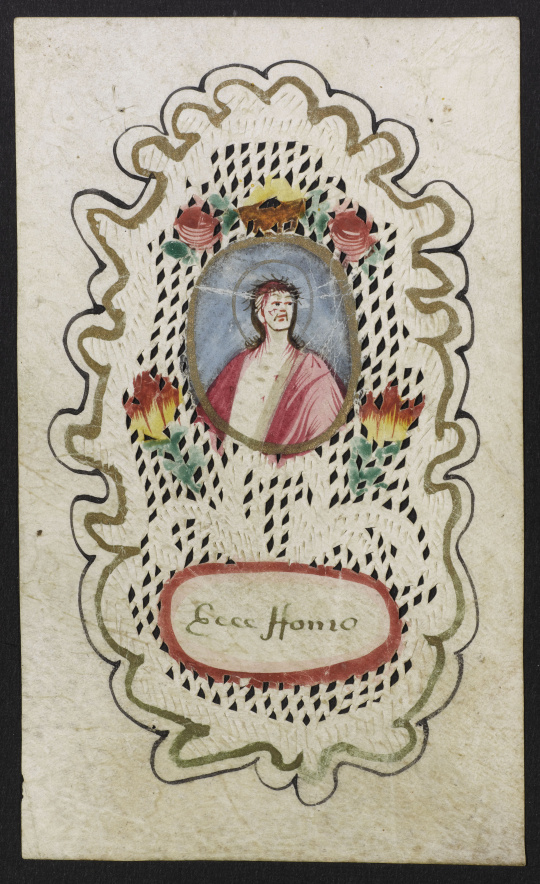 Ecce Homo